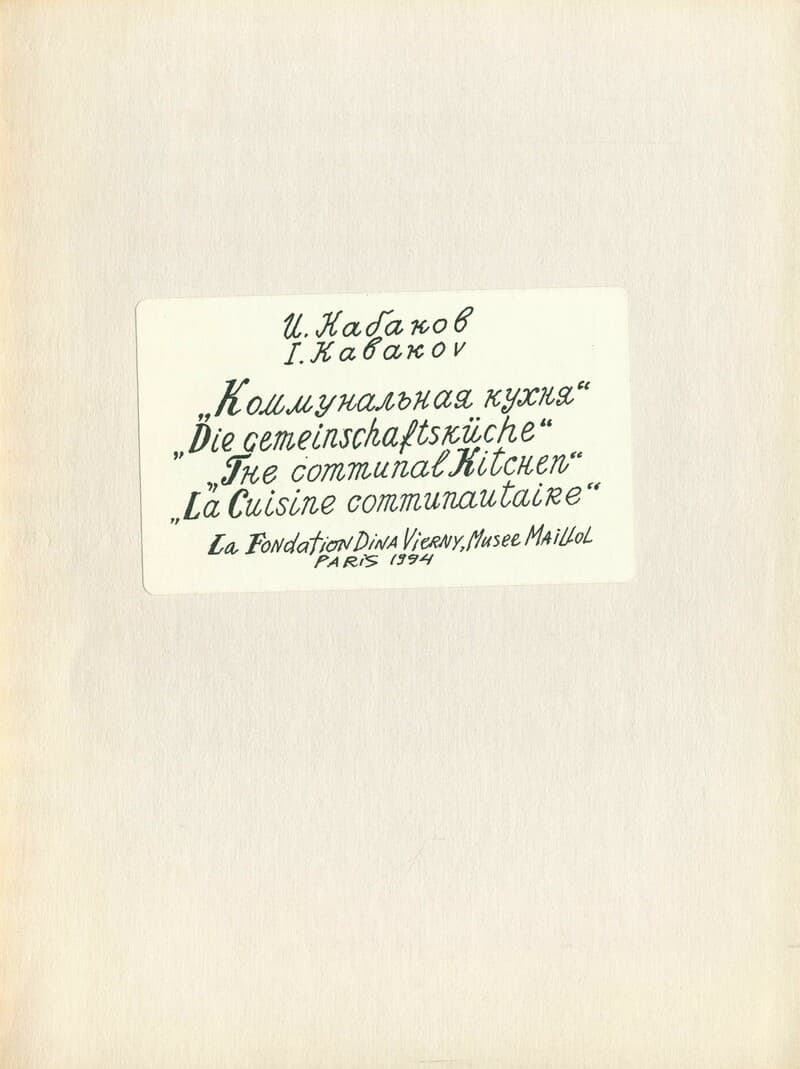 И. Кабаков
I. Kabakov
„Коммунальная кухня“
„Die gemeinschaftsküche“
„The communal Kitchen“
„La Cuisine communautaire“
La Fondation Dina Vierny, Musee Maillol
PARIS 1994